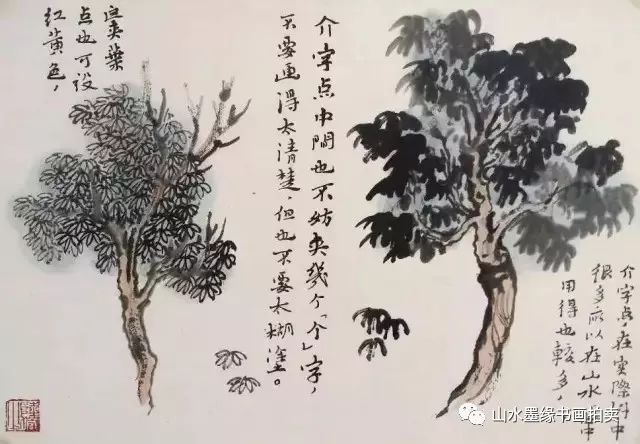 介字点，在实際树中
很多，所以在山水中
用得也較多，
介字点中間也不妨夹幾个「个」字，
不要画得太清楚，但也不要太糊塗。
夹葉
点也可設
红黄色，
山水墨缘书画拍卖